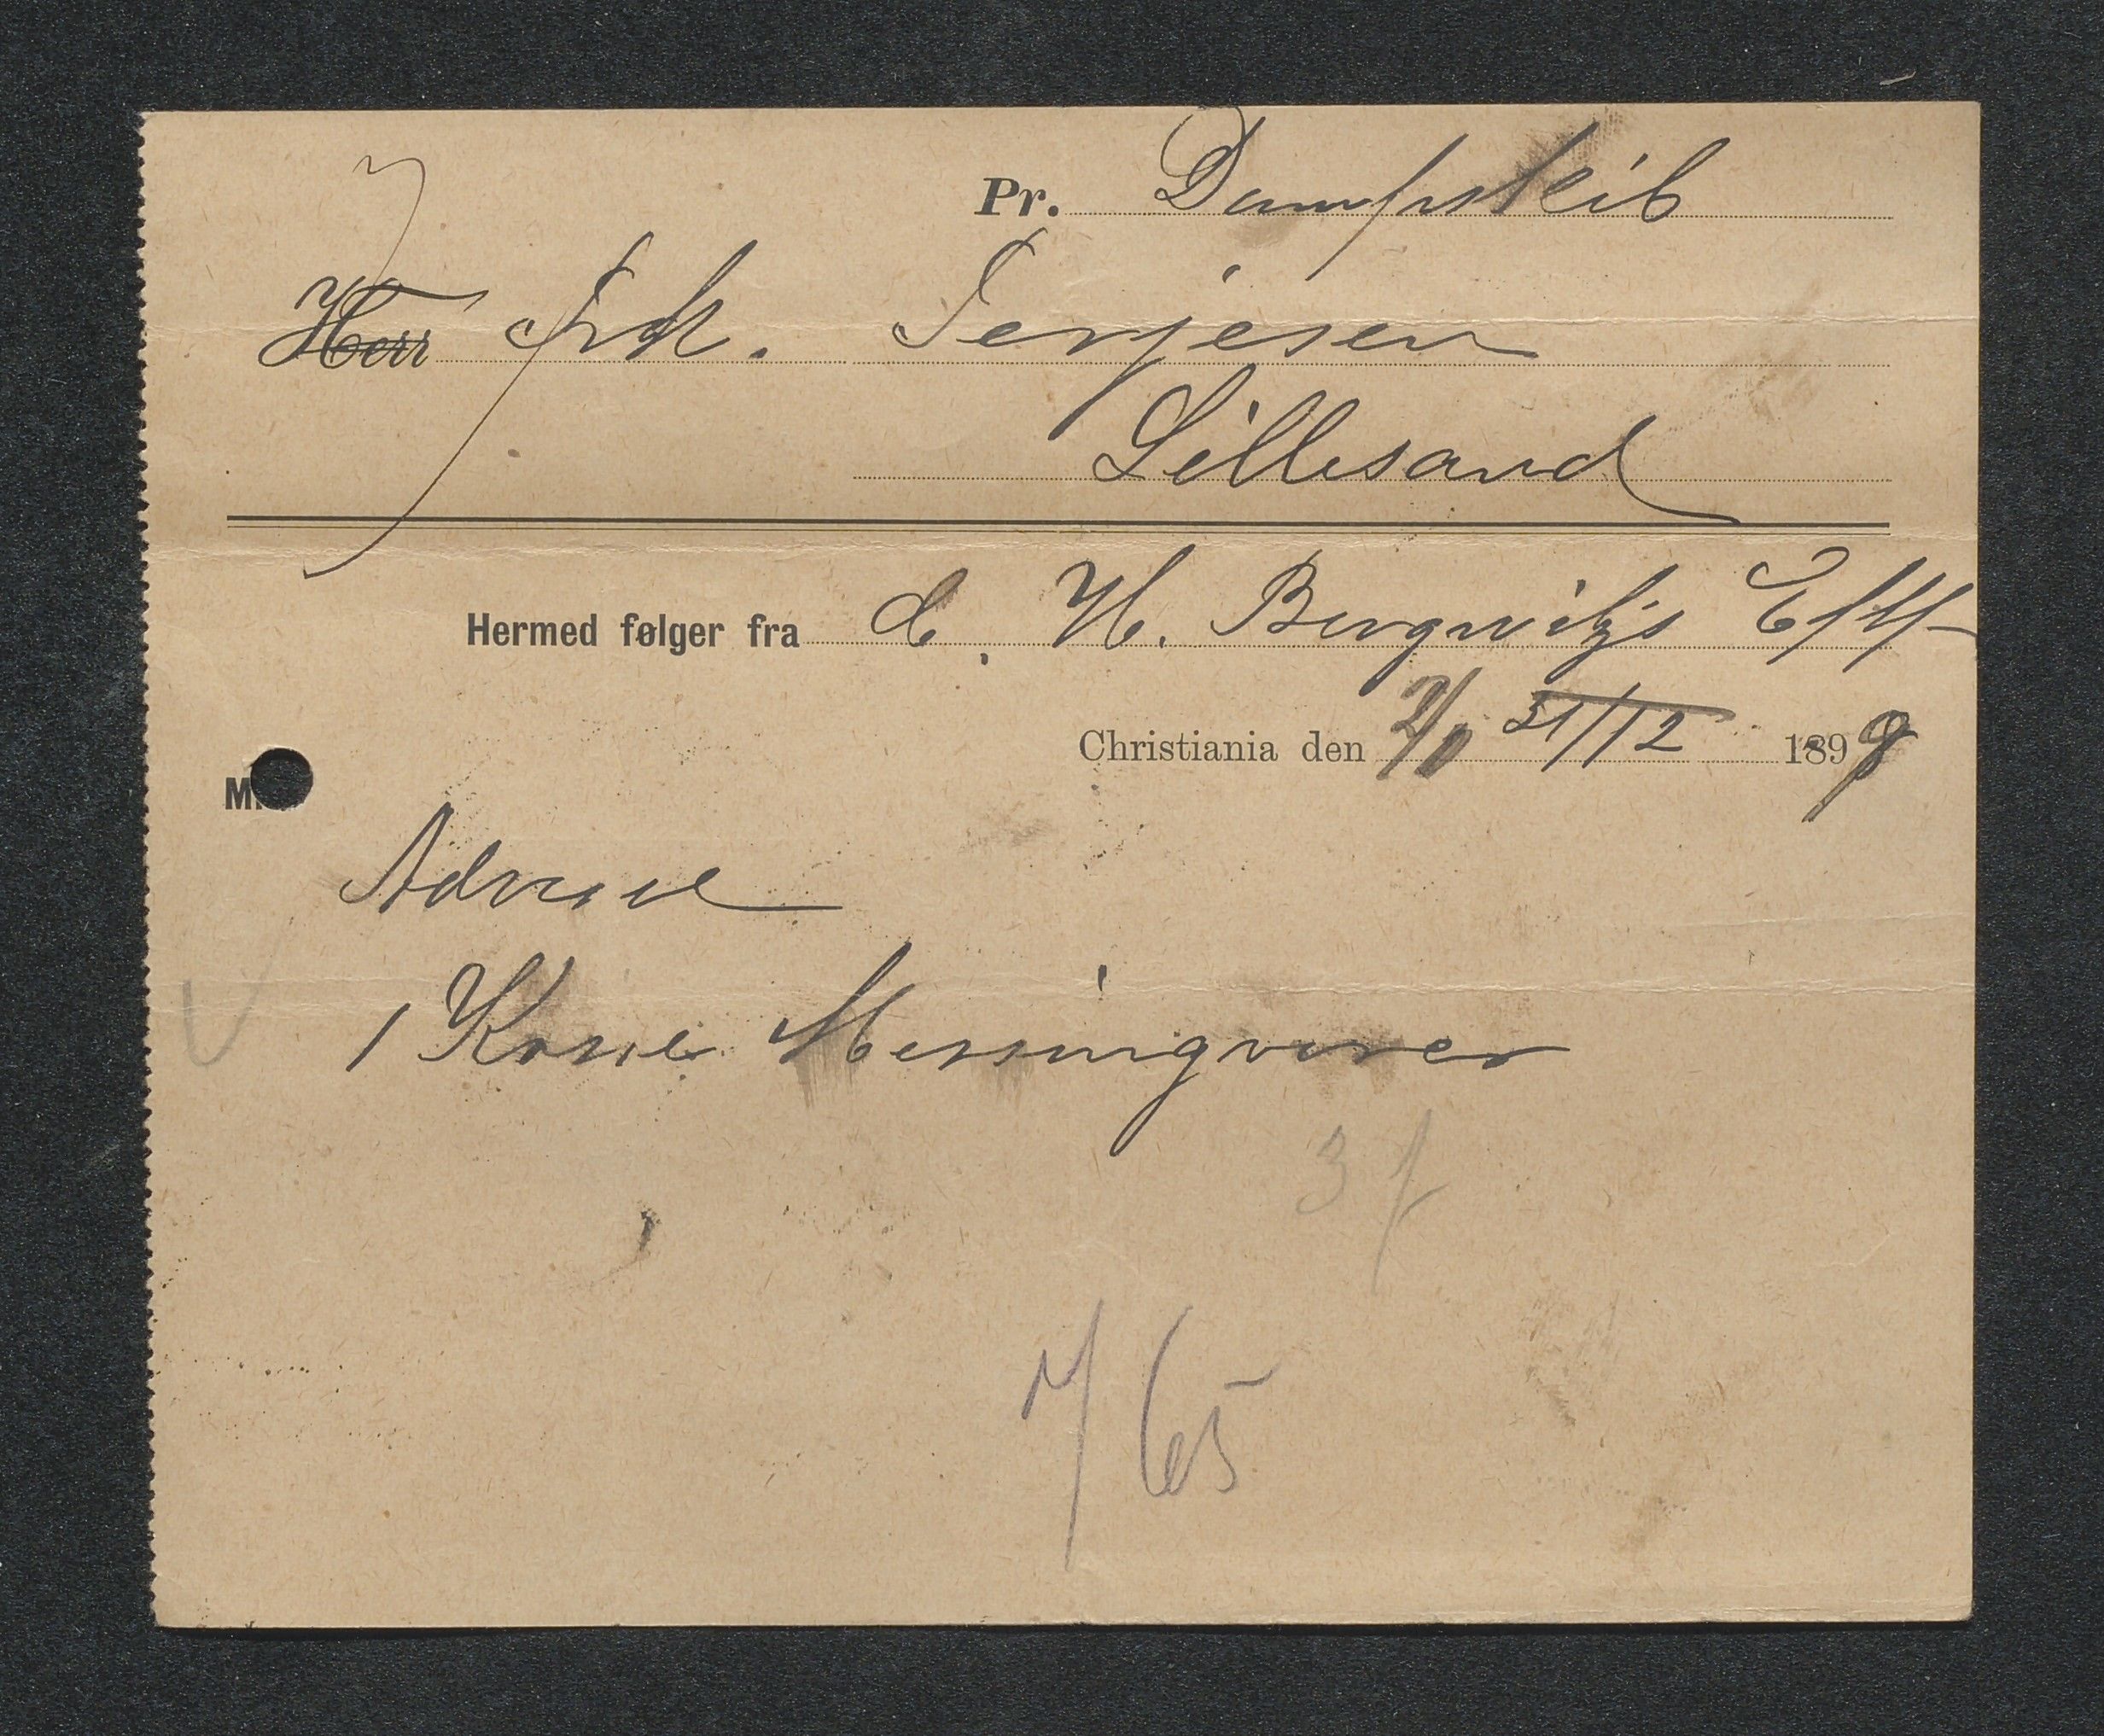 Pr. Dampskib
Herr Frk. Terjesen
Lillesand
Hermed følger fra C. H. Bergwitz's Eftf
Christiania den 2/1 31/12 1898
M
Adresse
1 Kasse Messingvarer
3
7 65